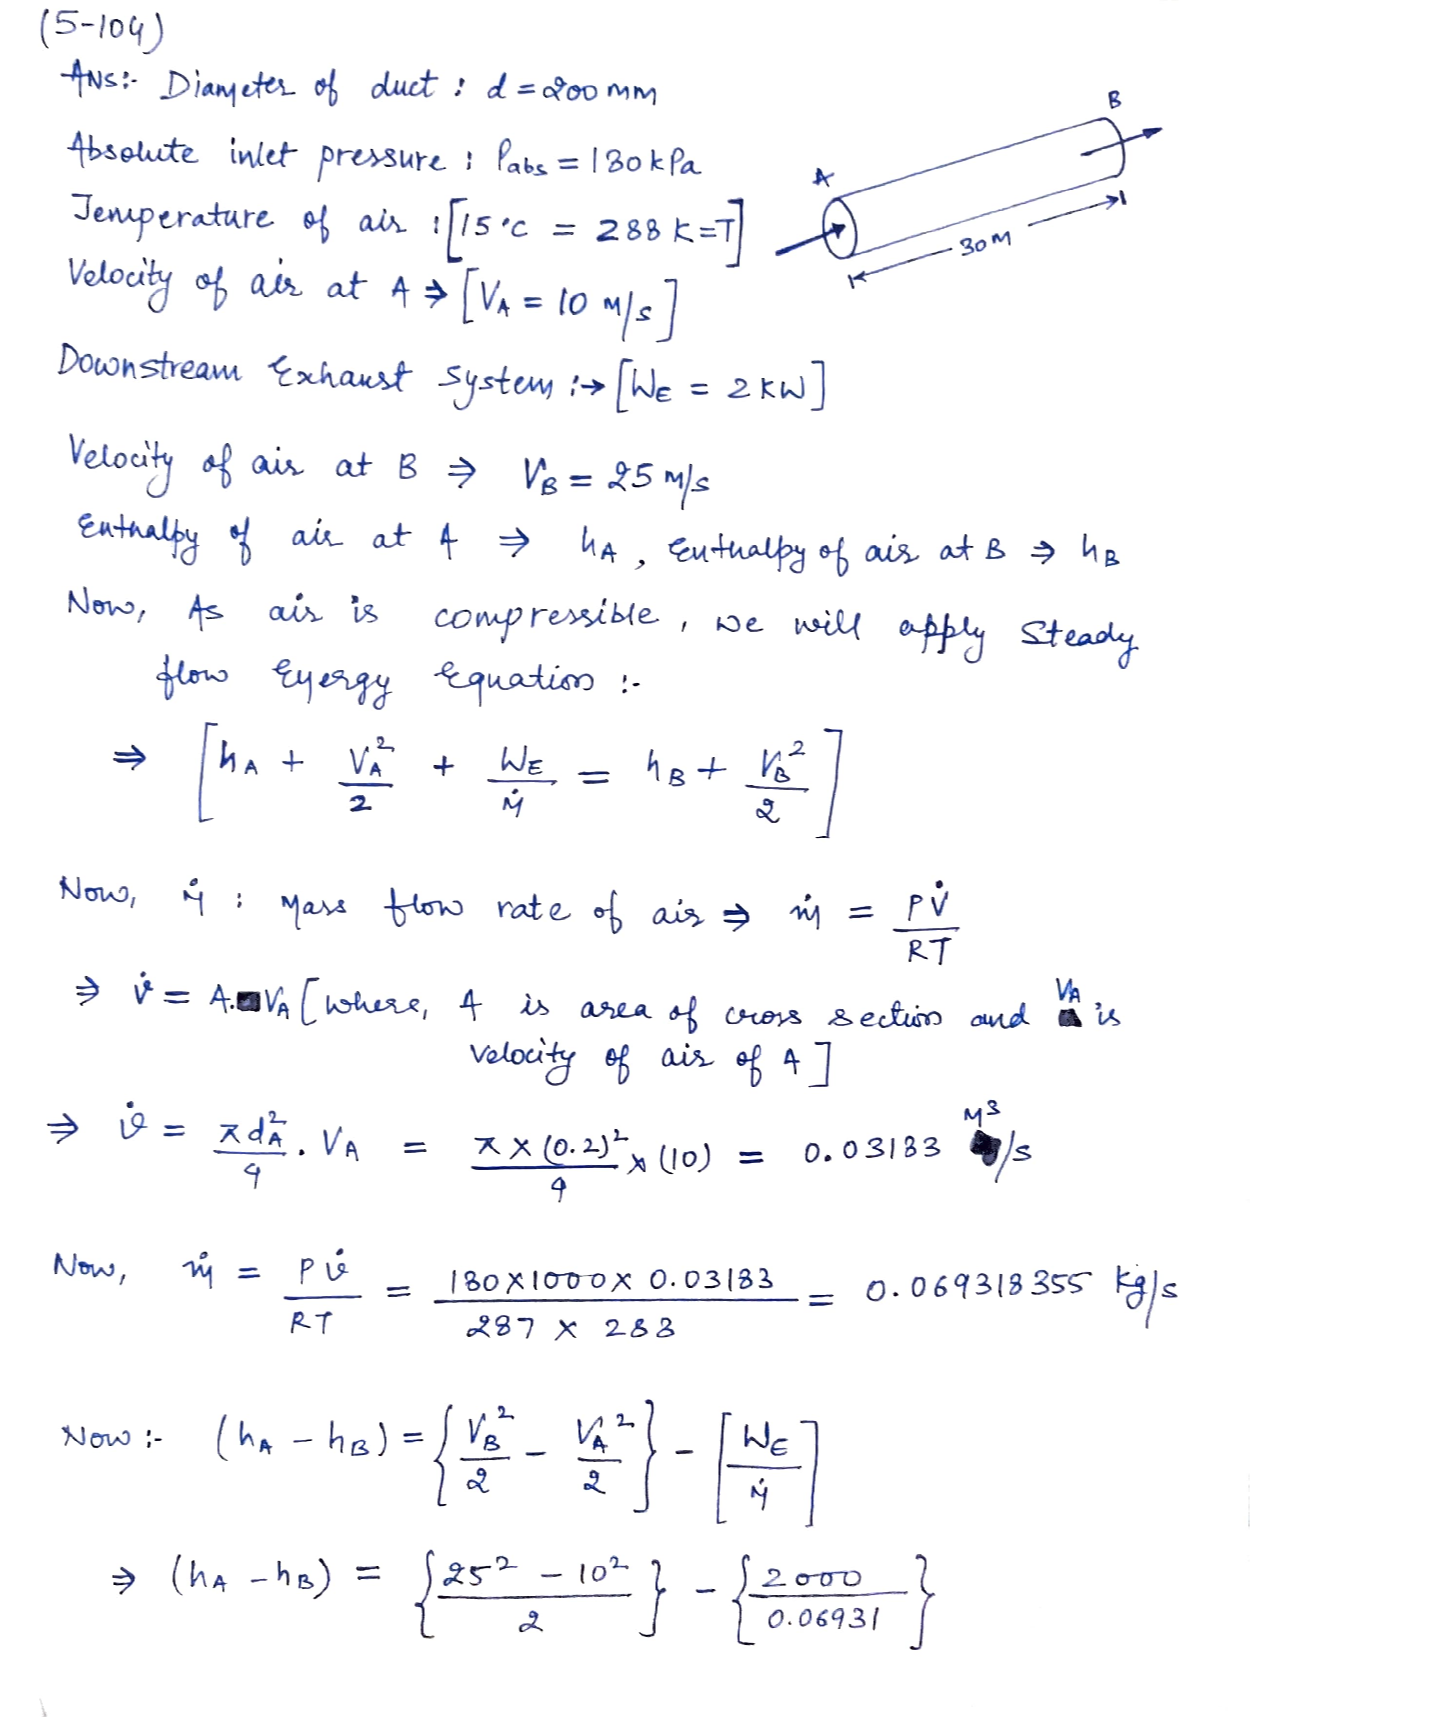 (5-104)
Ans:- Diameter of duct : d = 200 mm
B
Absolute inlet pressure : Pabs = 130 kPa
A
Temperature of air : [15°C = 288 K = T]
30 M
Velocity of air at A ⇒ [V_A = 10 M/s]
Downstream Exhaust System :→ [W_E = 2 KW]
Velocity of air at B ⇒ V_B = 25 m/s
Enthalpy of air at A ⇒ h_A, Enthalpy of air at B ⇒ h_B
Now, As air is compressible, we will apply Steady
flow Energy Equation :-
⇒ [h_A + V_A²/2 + W_E/ṁ = h_B + V_B²/2]
Now, ṁ : Mass flow rate of air ⇒ ṁ = PV̇/RT
⇒ v̇ = A.V_A [where, A is area of cross section and V_A is
Velocity of air of A]
⇒ v̇ = πd_A²/4 . V_A = π × (0.2)²/4 × (10) = 0.03183 M³/s
Now, ṁ = Pv̇/RT = 130×1000× 0.03183/287 × 288 = 0.069318355 kg/s
Now :- (h_A - h_B) = {V_B²/2 - V_A²/2} - [W_E/ṁ]
⇒ (h_A - h_B) = {25² - 10²/2} - {2000/0.06931}